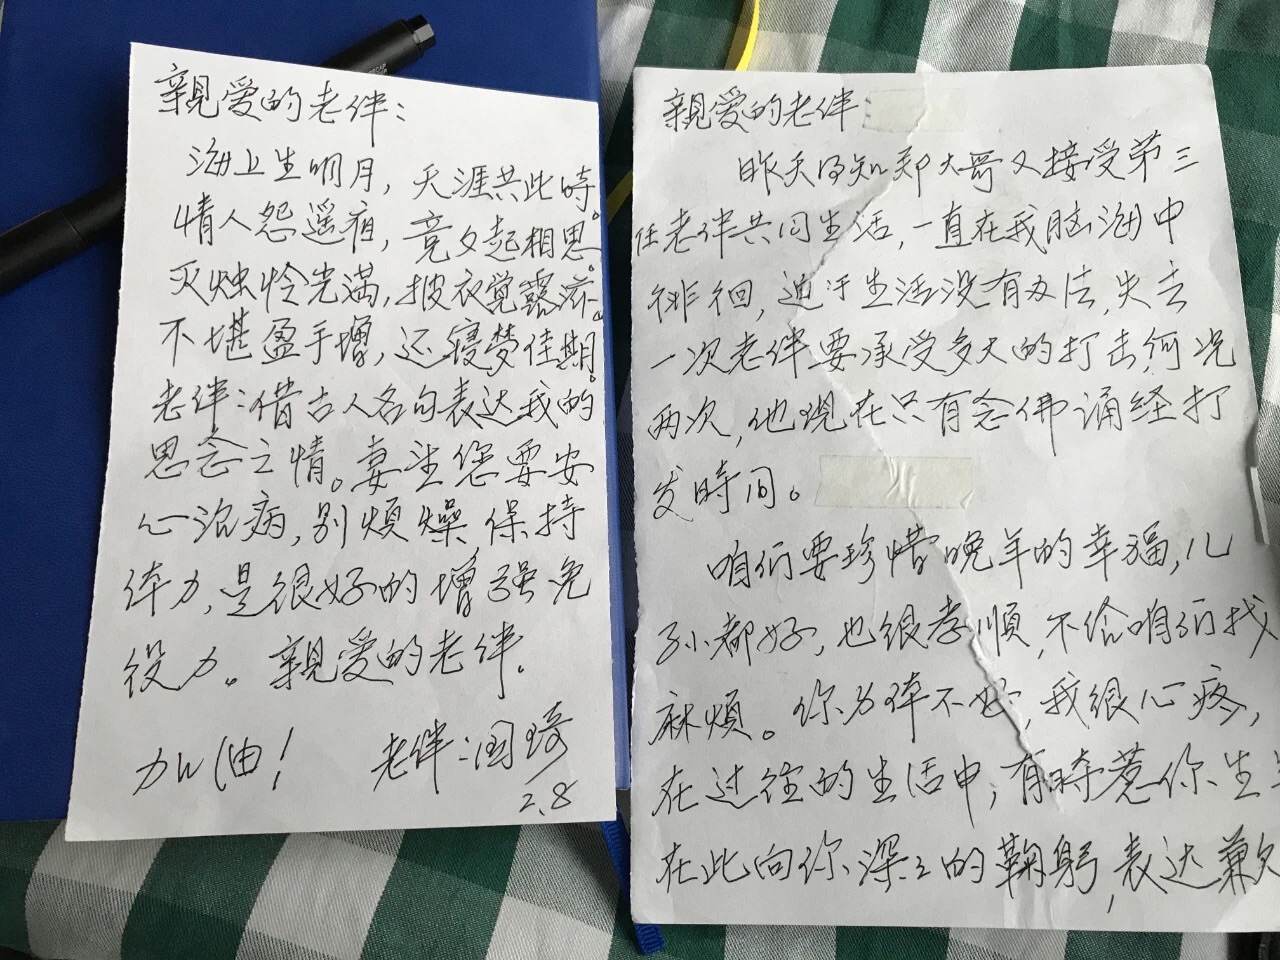 親爱的老伴:
海上生明月，天涯共此時。
情人怨遥夜，竟夕起相思。
灭烛怜光满，披衣觉露滋。
不堪盈手增，还寝梦佳期。
老伴:借古人名句表达我的
思念之情。妻望您要安
心治病，别煩燥，保持
体力，是很好的增强免
役力。親爱的老伴。
加油！ 老伴:国琦
2.8
親爱的老伴:
昨天得知郑大哥又接受第三
任老伴共同生活，一直在我脑海中
徘徊，迫于生活没有办法，失去
一次老伴要承受多大的打击，何况
两次，他现在只有念佛诵经打
发時间。
咱们要珍惜晚年的幸福，儿
孙都好，也很孝顺，不给咱们找
麻煩。你身体不好，我很心疼，
在过往的生活中，有時惹你生
在此向你深々的鞠躬，表达歉